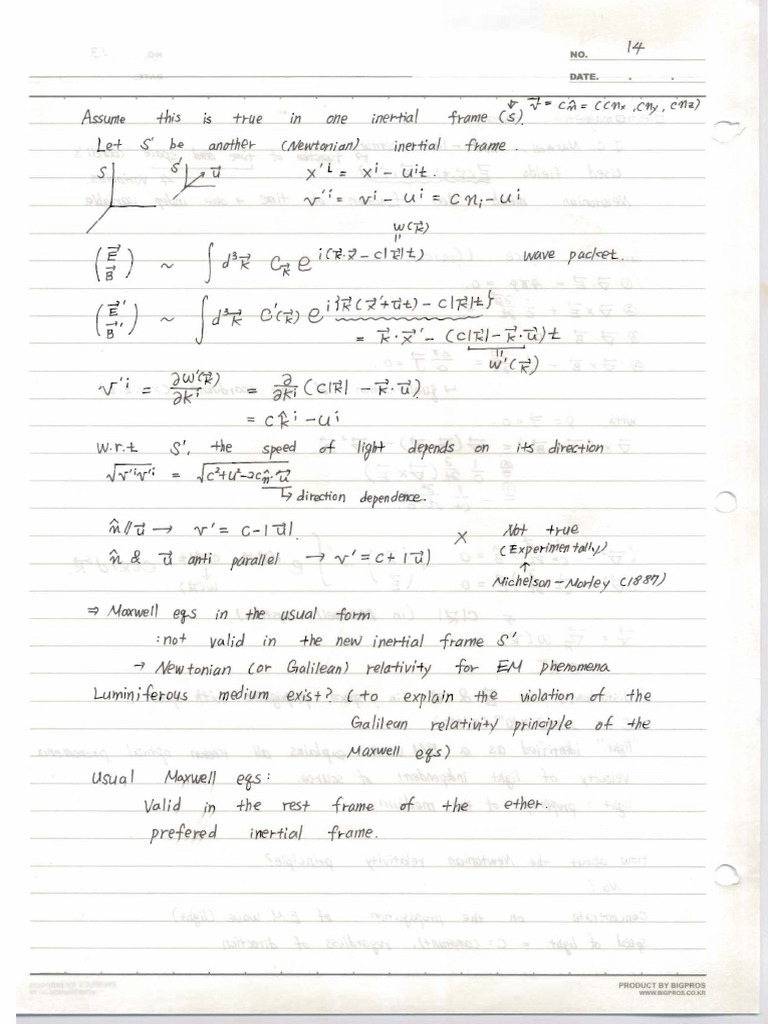 NO. 14
DATE. . .
Assume this is true in one inertial frame (S). v⃗ = cn̂ = (cnx, cny, cnz)
Let S' be another (Newtonian) inertial frame.
S S' u⃗ x'^i = x^i - u^i t.
v'^i = v^i - u^i = cn_i - u^i
w(k⃗)
(E⃗ B⃗) ~ ∫ d³k⃗ C_k⃗ e^{i(k⃗·x⃗ - c|k⃗|t)} wave packet.
(E⃗' B⃗') ~ ∫ d³k⃗ C'(k⃗) e^{i{k⃗(x⃗'+u⃗t) - c|k⃗|t}}
= k⃗·x⃗' - (c|k⃗| - k⃗·u⃗)t
w'(k⃗)
v'^i = ∂w'(k⃗)/∂k^i = ∂/∂k^i (c|k⃗| - k⃗·u⃗)
= ck̂^i - u^i
w.r.t S', the speed of light depends on its direction
√(v'^i v'^i) = √(c²+u²-2cn̂·u⃗)
↳ direction dependence.
n̂ // u⃗ → v' = c-|u⃗|. × Not true
(Experimentally)
n̂ & u⃗ anti parallel → v' = c+|u⃗|
↑
Michelson-Morley (1887)
⇒ Maxwell eqs in the usual form
: not valid in the new inertial frame S'
→ Newtonian (or Galilean) relativity for EM phenomena
Luminiferous medium exist? (to explain the violation of the
Galilean relativity principle of the
Maxwell eqs)
Usual Maxwell eqs:
Valid in the rest frame of the ether.
prefered inertial frame.
PRODUCT BY BIGPROS
WWW.BIGPROS.CO.KR